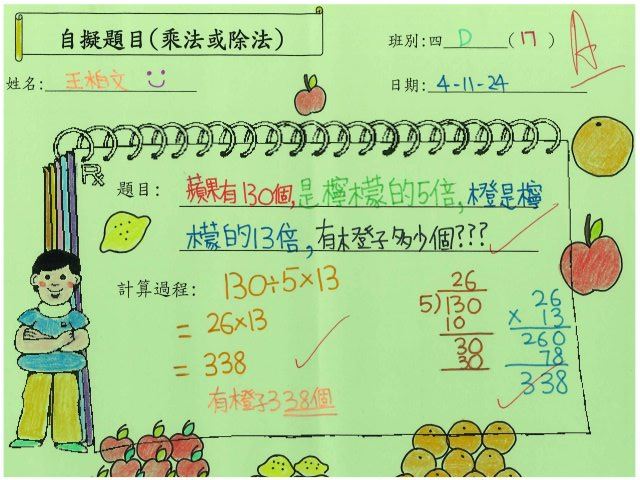 自擬題目(乘法或除法)
班別:四 D (17)
A
姓名: 王柏文
日期: 4-11-24
題目: 蘋果有130個,是檸檬的5倍,橙是檸
檬的13倍,有橙子多少個???
計算過程: 130÷5×13
= 26×13
= 338
有橙子338個
26
5)130
10
30
30
26
× 13
260
78
338